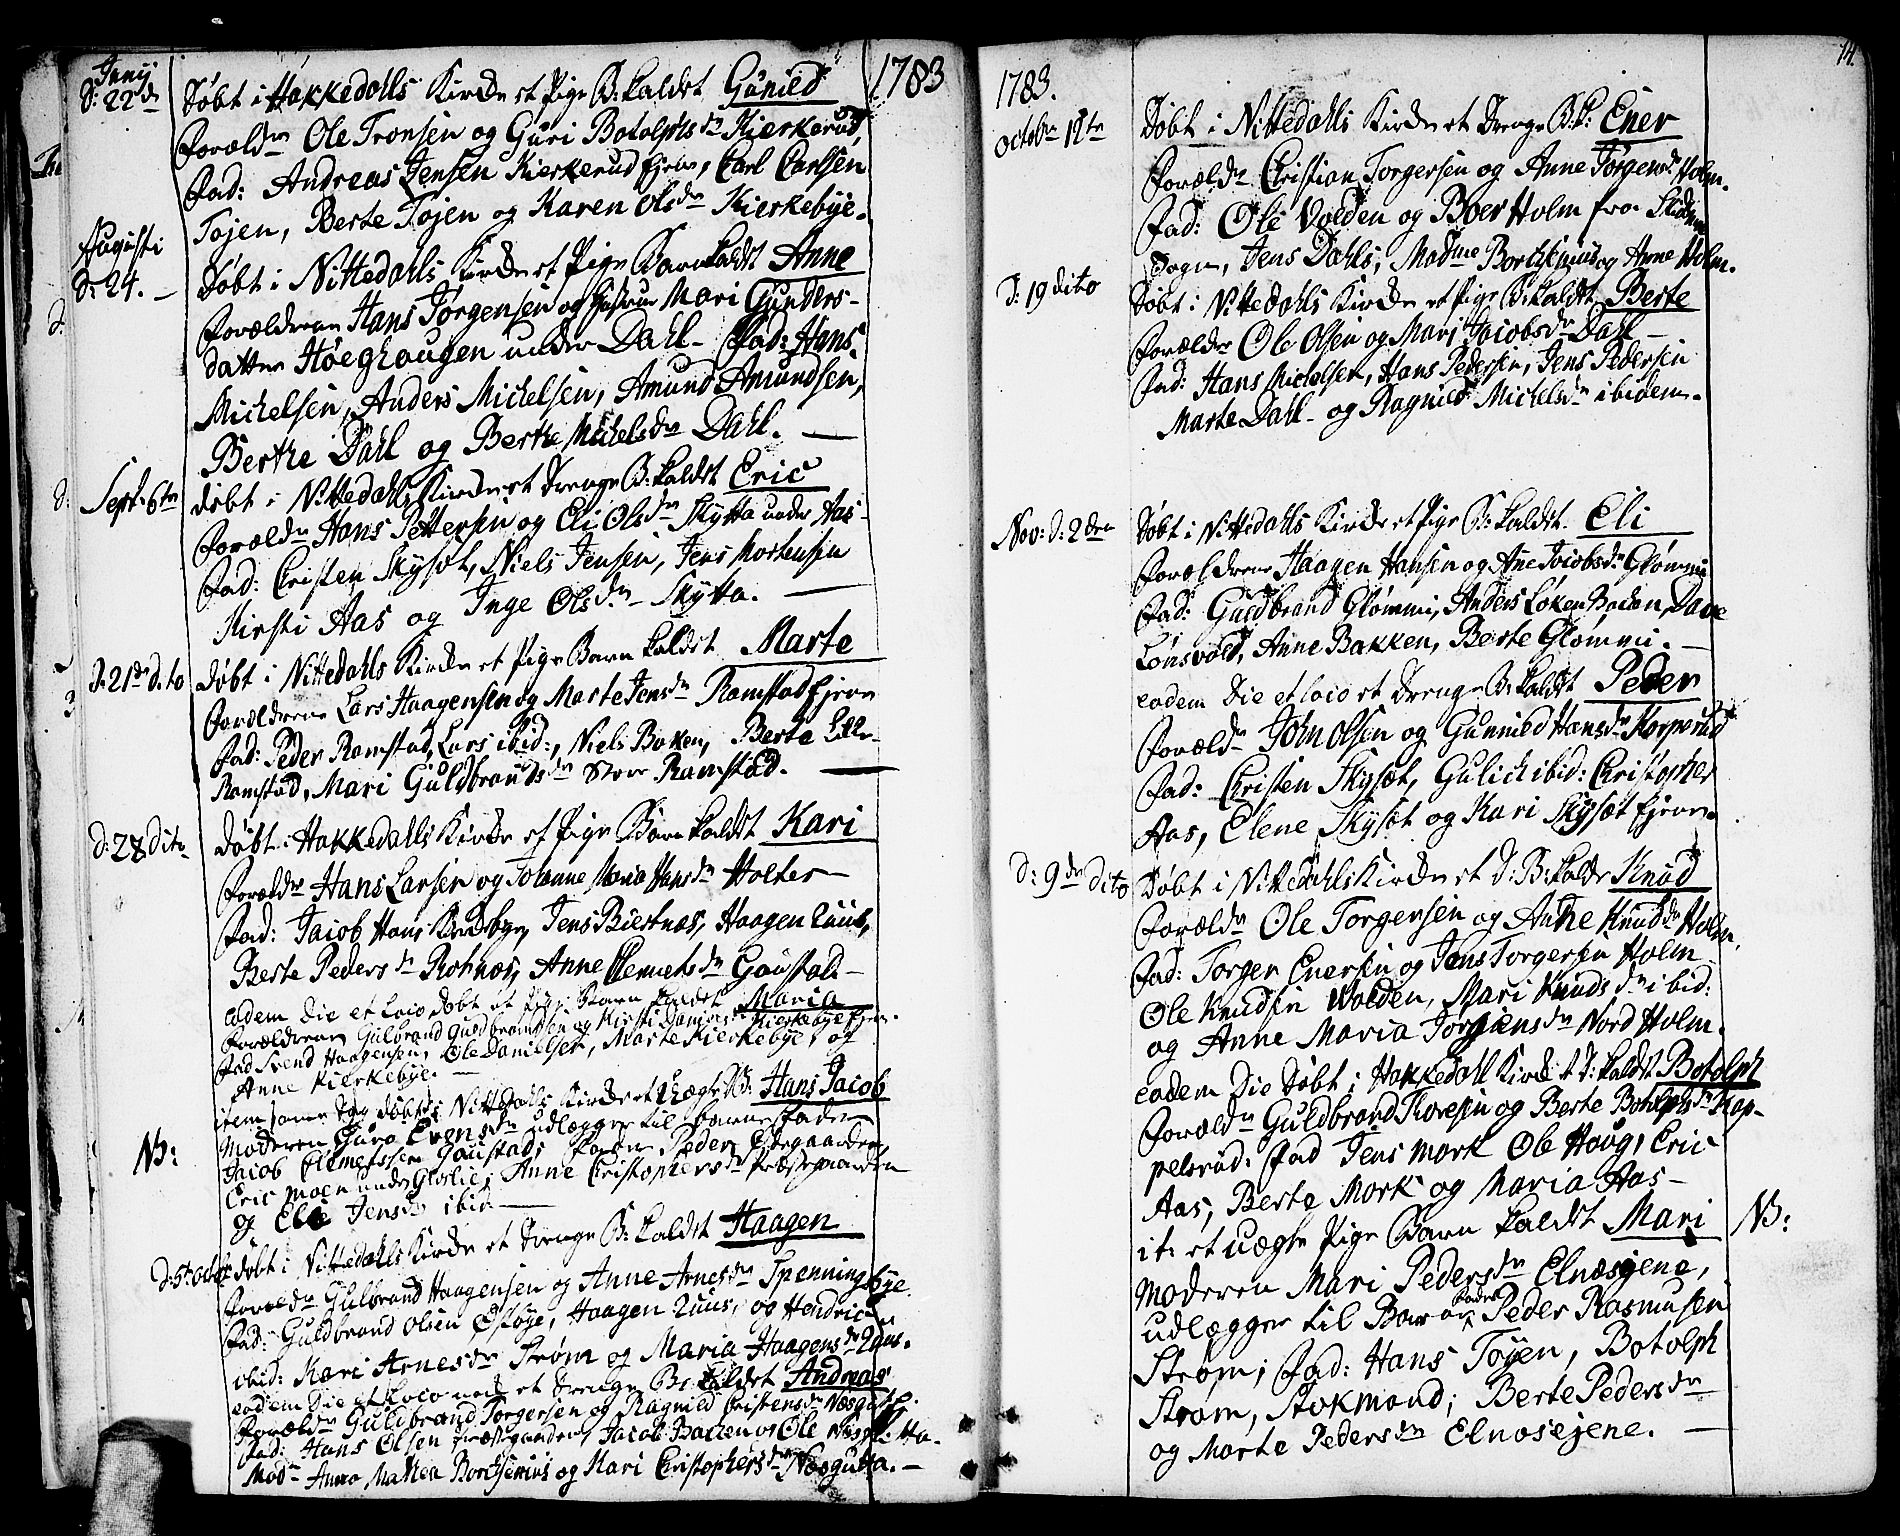 1783
Junij
d: 22de
Døbt i Hakkedalls Kirche et Pige B: kaldet Gunild
Foreldrn Ole Tronsen og Guri Botolphsdn Kierkerud,
Fad: Andreas Jensen Kierkerud Ejern, Carl Carlsen
Tøjen, Berte Tøjen og Karen Olsdn Kierkebye.
Augusti
d: 24. —
Døbt i Nittedahls Kirche et Pige Barn kaldet Anne
Forældrene Hans Jørgensen og Hustrue Mari Gunders-
datter Høeghaugen under Dahl - Fad: Hans
Michelsen, Anders Michelsen, Amund Amundsen,
Berthe Dahl og Berthe Michelsdn Dahl. —
Sept: 6tn
døbt i Nittedahls Kirche et Drenge B: kaldet Eric
Foreldn Hans Pettersen og Eli Olsdn Skytta under Aas-
Fad: Christen Skysæt, Niels Jensen, Jens Mortensen
Kirsti Aas og Inge Olsdn Skytta. —
d: 21de dito
Døbt i Nittedahls Kirche et Pige Barn kaldet Marte
Forældrene Lars Haagensen og Marte Jensdn Ramstad Ejere
Fad: Peder Ramstad, Lars ibid:, Niels Baken, Berte Lille-
Ramstad, Mari Guldbrandsdn Store Ramstad. —
d: 28 dito
Døbt i Hakkedalls Kirche et Pige Barn kaldet Kari
Foreldrn Hans Larsen og Johanne Maria Hansdn Holter —
Fad: Jacob Hans Kirchebye, Jens Biertnæs, Haagen Ruud,
Berte Pedersdn Rotnæs, Anne Clemetsdn Gaustad —
eadem Die et Loco døbt et Pige Barn kaldet Maria
Forældrene Gulbrand Guldbrandsen og Kirsti Danielsdn Kierkebye Ejern.
Fad Svend Haagensen, Ole Danielsen, Marte Kierkebye, og
Anne Kierkebye. —
NB:
item samme Dag døbt i Nittedahls Kirche et Uægte B: Hans Jacob
Moderen Guro Evensdn udlægger til barne Fader
Jacob Clemetssen Gaustad, Fadn Peder Prærgaarden
Eric Moen under Glorlie, Anne Christophersdn Præstegaarden
og Elie Jensdn ibid —
d: 5te octob
Døbt i Nittedahls Kirche et Drenge B: kaldet Haagen
Foreldn Gulbrand Haagensen og Anne Arnesdn Spenningbye.
Fad: Guldbrand Olsen Østbye, Haagen Ruus, og Hendric
ibid: Kari Arnesdn Strøm og Maria Haagensdn Ruus.
eadem Die et Loco et Drenge B: kaldet Andreas
Foreldn Guldbrand Torgersen og Ragnild Cristensdn Næsgutta.
Fad: Hans Olsen Præstegaarden, Jacob Bacten og Ole Næsgutta.
Madn Anna Mathea Borchsenius og Kari Christophersdn Næsgutta. —
14.
1783.
octobr 12tn
Døbt i Nittedahls Kirche et Drenge B: k: Ener
Foreldn Christian Torgersen og Anne Jørgensdn Holm.
Fad: Ole Volden og Boer Holm fra Skedsmoe
Sogn, Jens Dahls, Madme Borchsenius og Anne Holm.
d: 19 dito
Døbt i Nittedahls Kirche et Pige B: kaldet Berte
Forældre Ole Olsen og Mari Jacobsdn Dahl —
Fad: Hans Michelsen, Hans Pedersen, Jens Pedersen
Marte Dahl - og Ragnild Michelsdn ibidem.
Nov: d: 2den
Døbt i Nittedahls Kirche et Pige B: kaldet Eli
Forældrene Haagen Hansen og Ane Jacobsdn Glømmi
Fad: Guldbrand Glømmi, Anders Løken Baden, Dave
Lønsvold, Anne Bakken, Berte Glømmi. —
eadem Die et loco et Drenge B: kaldet Peder
Foreldn John Olsen og Gunnild Hansdn Korperud
Fad: Christen Skysæt, Gulich ibid: Christopher
Aas, Elene Skysæt og Kari Skysæt Ejern.
d: 9de dito
Døbt i Nittedahls Kirche et D: B: kaldet Knud
Foreldn Ole Torgersen og Anne Knudsdn Holm.
Fad: Torger Enersen og Jens Torgersen Holm
Ole Knudsen Wolden, Mari Knudsdn ibid:
og Anne Maria Jørgensdn Nord Holm.
eadem Die Døbt i Hakkedall Kirche et D: kaldet Botolph
Foreldn Guldbrand Toresen og Berte Botolphsdn Kap-
pelsrud: Fad Jens Mork Ole Houg, Eric
Aas, Berte Mork og Maria Aas —
NB:
it: et uægte Pige Barn kaldet Mari
Moderen Mari Pedersdn Elnæsejene,
udlægger til Barne Fader Peder Rasmusen
Strøm; Fad: Hans Tøyen, Botolph
Strøm, Stokmand; Berte Pedersdn
og Marte Pedersdn Elnæsejene. —